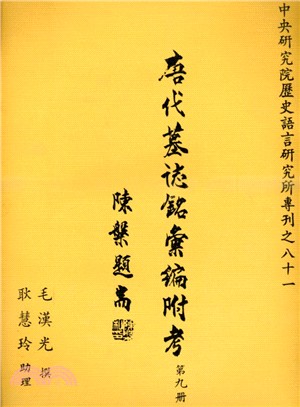 中央研究院歷史語言研究所專刊之八十一
唐代墓誌銘彙編附考
第九册
陳槃題耑
毛漢光 撰
耿慧玲 助理